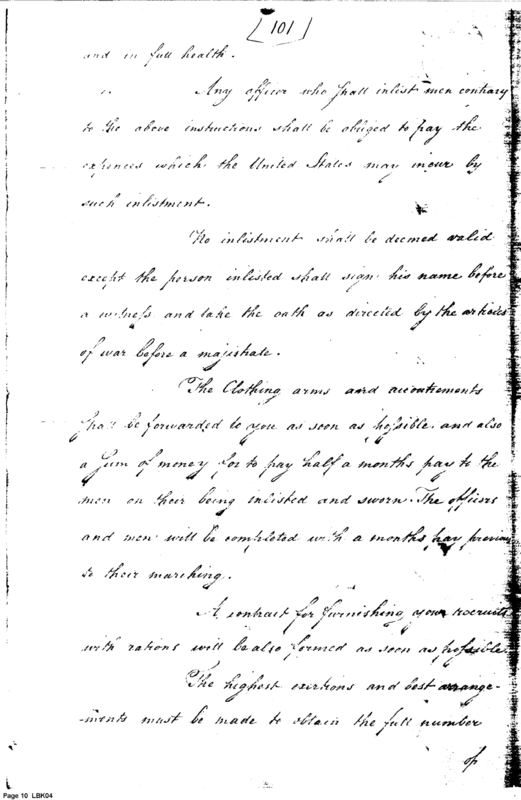 [101]
and in full health.
Any officer who shall inlist men contrary
to the above instructions shall be obliged to pay the
expences which the United States may incur by
such enlistment.
No inlistment shall be deemed valid
except the person inlisted shall sign his name before
a witness and take the oath as directed by the articles
of war before a majistrate.
The Clothing arms and accoutrements
shall be forwarded to you as soon as possible and also
a sum of money for to pay half a months pay to the
men on their being inlisted and sworn. The officers
and men will be completed with a months pay previous
to their marching.
A contract for furnishing your recruits
with rations will be also formed as soon as possible.
The highest exertions and best arrange-
-ments must be made to obtain the full number
of
Page 10 LBK04